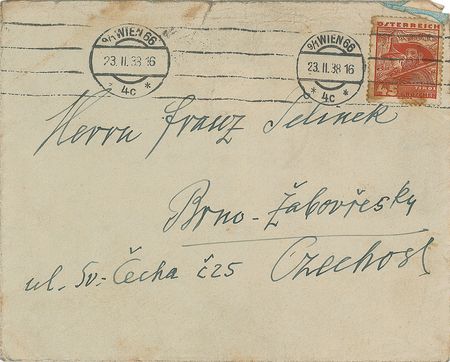 9/1 WIEN 66
23. II. 38 16
* 4c *
9/1 WIEN 66
23. II. 38 16
* 4c *
ÖSTERREICH
45
TIROL
Herrn Franz Jelinek
Brno-Žabovřesky
ul. Sv. Čecha č 25
Czechosl